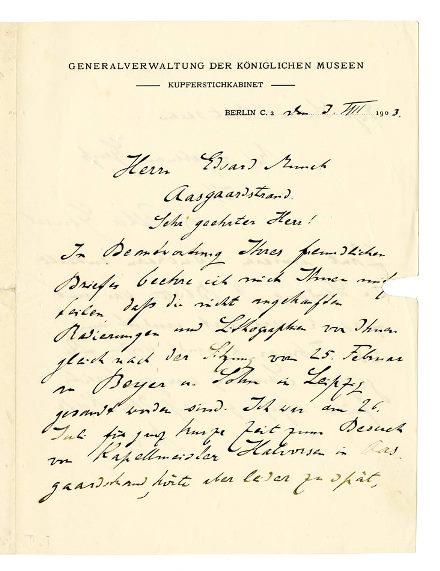 GENERALVERWALTUNG DER KÖNIGLICHEN MUSEEN
KUPFERSTICHKABINET
BERLIN C. 2 den 3. VIII 1903.
Herrn Edvard Munch
Aasgaardstrand.
Sehr geehrter Herr!
In Beantwortung Ihres freundlichen
Briefes beehre ich mich Ihnen mit
teilen daß die nicht angekauften
Radierungen und Lithographien von Ihnen
gleich nach der Sitzung vom 25. Februar
an Beyer u. Sohn in Leipzig
gesandt worden sind. Ich war am 26.
Juli für ganz kurze Zeit zum Besuch
von Kapellmeister Halvorsen in Aas-
gaardstrand, hörte aber leider zu spät,